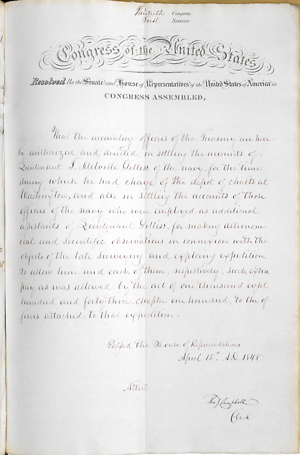 Thirtieth Congress
First Session
Congress of the United States
Resolved By the Senate and House of Representatives of the United States of America in
CONGRESS ASSEMBLED,
That the accounting officers of the Treasury are here
by authorized and directed in settling the accounts of
Lieutenant J. Melville Gilliss of the navy, for the time
during which he had charge of the depot of charts at
Washington, and also in settling the accounts of those
officers of the navy who were employed as additional
assistants of Lieutenant Gilliss, for making astronom
ical and scientific observations in connexion with the
objects of the late surveying and exploring expedition,
to allow him and each of them, respectively, such extra
pay as was allowed by the act of one thousand eight
hundred and forty-three, chapter one hundred, to the of
ficers attached to that expedition.
Passed the House of Representatives
April 15th A.D. 1848
Attest
Campbell
Clerk